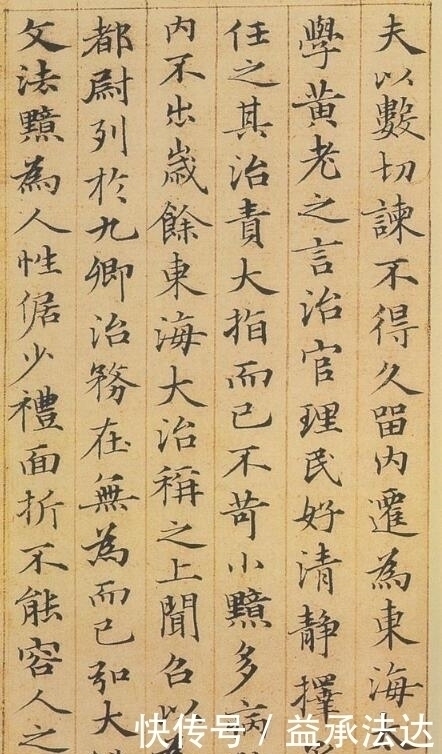 夫以數切諫不得久留内遷為東海
學黄老之言治官理民好清静擇
任之其治責大指而已不苛小黯多病
内不出歲餘東海大治稱之上聞召以
都尉列於九卿治務在無為而已弘大
文法黯為人性倨少禮面折不能容人之
快传号 / 益承法达